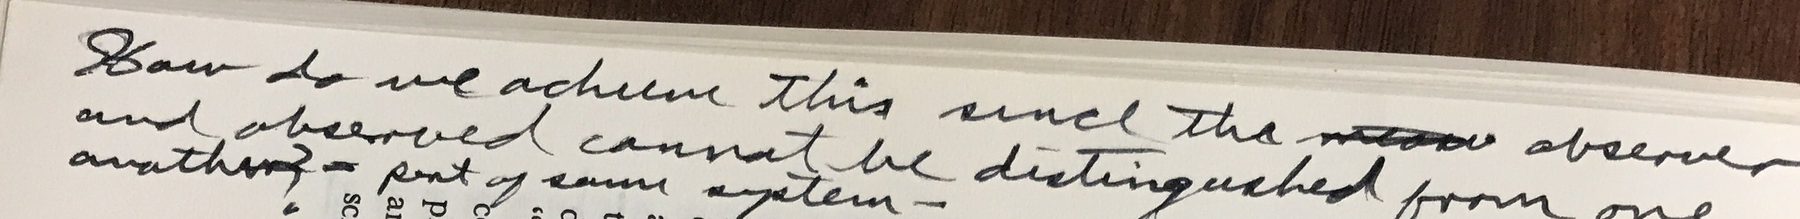 How do we achieve this since the observer
and observed cannot be distinguished from one
another? - part of same system -